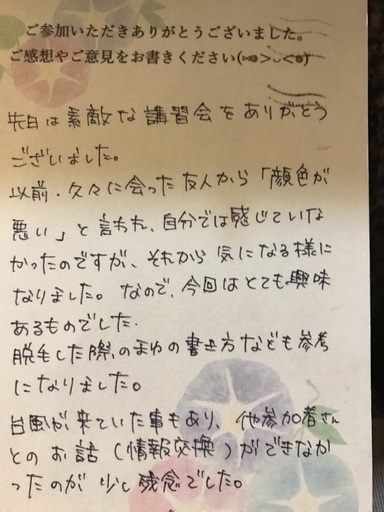 ご参加いただきありがとうございました。
ご感想やご意見をお書きください
先日は素敵な講習会をありがとう
ございました。
以前、久々に会った友人から「顔色が
悪い」と言われ、自分では感じていな
かったのですが、それから気になる様に
なりました。なので、今回はとても興味
あるものでした.
脱毛した際のまゆの書き方なども参考
になりました。
台風が来ていた事もあり、他参加者さん
とのお話(情報交換)ができなか
ったのが少し残念でした。